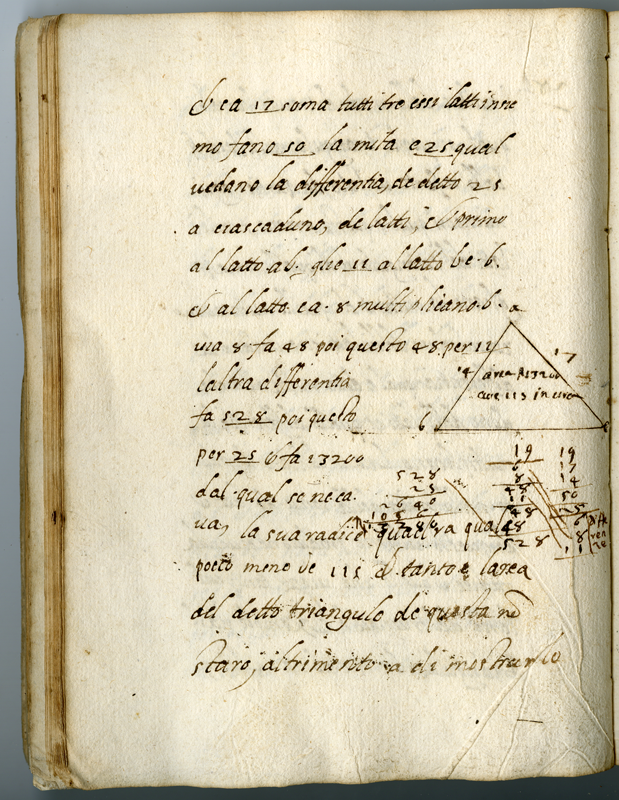 & ca 17 soma tutti tre essi latti inse
mo fano 50 la mita e 25 qual
uedano la differentia, de detto 25
a ciascaduno, de latti, & primo
al latto ab. ghe 11 al latto bc. 6.
& al latto ca. 8 multiplicano. 6.
uia 8 fa 48 poi questo 48 per 11
laltra differentia
fa 528 poi questo
per 25 & fa 13200
dal qual se ne ca
ua, la sua radice quadra qual
poco meno de 115 & tanto e larea
del detto triangulo de questa nō
staro, altrimento a di mostrarlo
a
17
14
area R 13200
115 in circa
b
c
528
25
2640
1056
13200
19
6
8
48
11
48
48
528
19
17
14
50
25
6
8
11
diffe
ren
tie